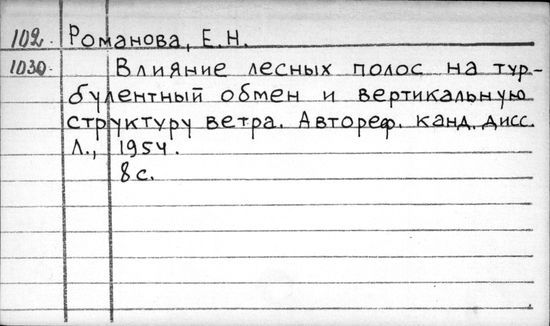 102. Романова, Е. Н.
1030. Влияние лесных полос на тур-
булентный обмен и вертикальную
структуру ветра. Автореф. канд. дисс.
Л., 1954.
8 с.